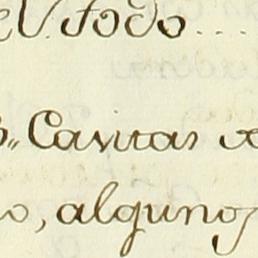 Todo....
Cavitas
o, algunos